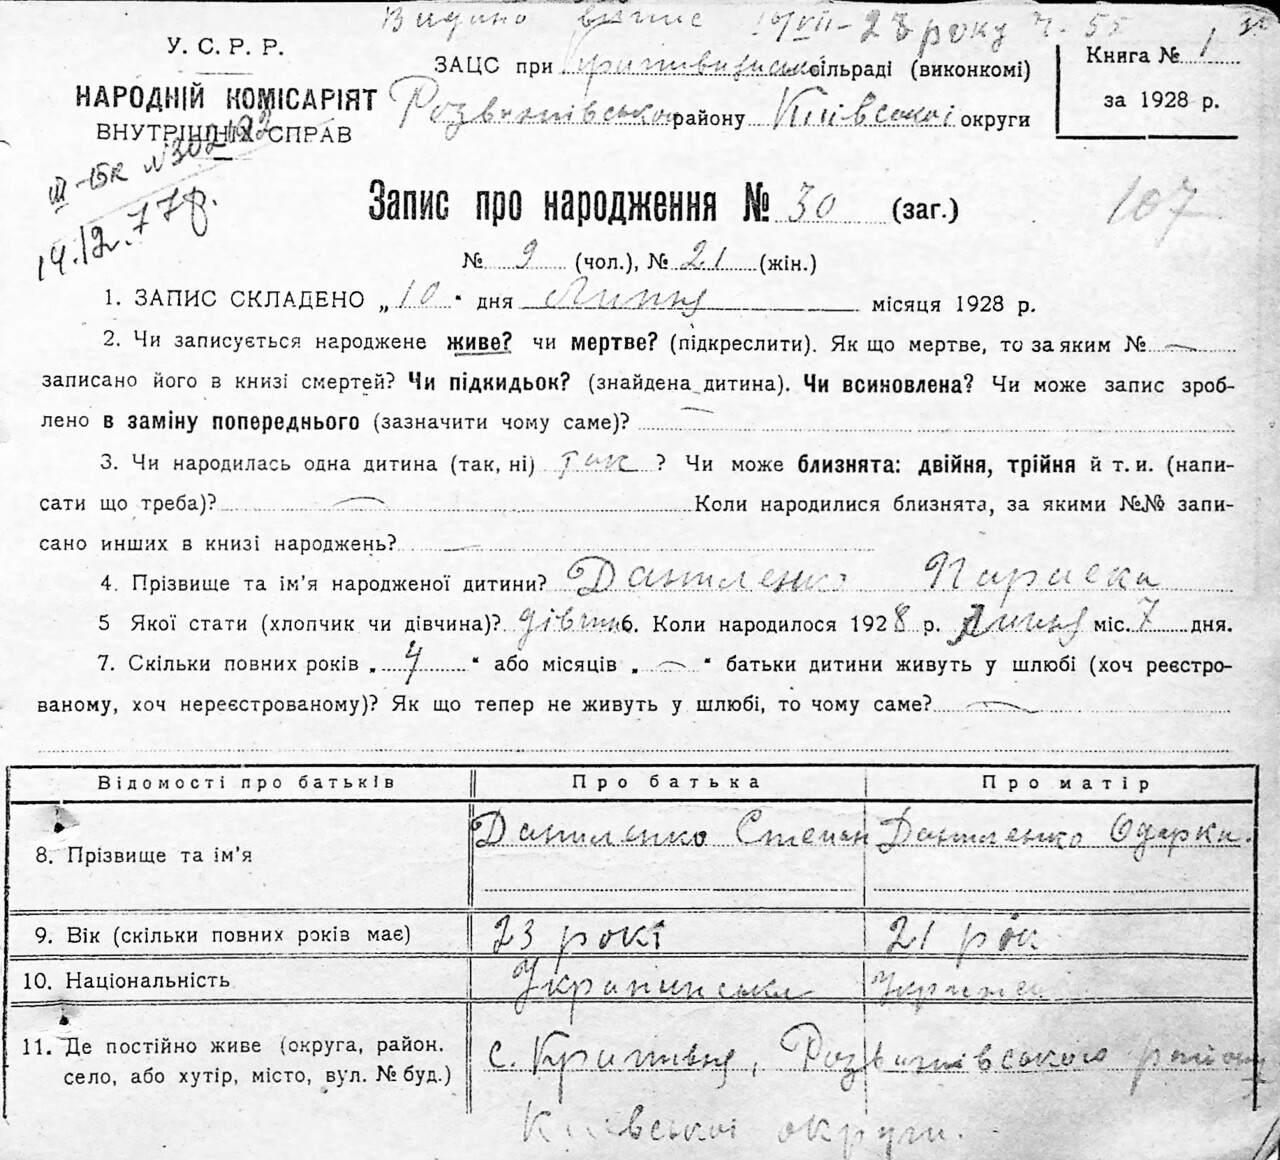 Видано випис 10/VII-28 року ч. 55
У. С. Р. Р.
НАРОДНІЙ КОМІСАРІЯТ
ВНУТРІШНІХ СПРАВ
III-БК №302122
14.12.77р.
ЗАЦС при сільраді (виконкомі)
Розважівського району Київської округи
Книга № 1
за 1928 р.
Запис про народження № 30 (заг.)
107
№ 9 (чол.), № 21 (жін.)
1. ЗАПИС СКЛАДЕНО „10“ дня Липня місяця 1928 р.
2. Чи записується народжене живе? чи мертве? (підкреслити). Як що мертве, то за яким №
записано його в книзі смертей? Чи підкидьок? (знайдена дитина). Чи всиновлена? Чи може запис зроб-
лено в заміну попереднього (зазначити чому саме)?
3. Чи народилась одна дитина (так, ні) так ? Чи може близнята: двійня, трійня й т. и. (напи-
сати що треба)? Коли народилися близнята, за якими №№ запи-
сано инших в книзі народжень?
4. Прізвище та ім'я народженої дитини? Даниленко Параска
5 Якої стати (хлопчик чи дівчина)? дівчин 6. Коли народилося 1928 р. Липня міс. 7 дня.
7. Скільки повних років „4“ або місяців „—“ батьки дитини живуть у шлюбі (хоч реєстро-
ваному, хоч нереєстрованому)? Як що тепер не живуть у шлюбі, то чому саме?
Відомості про батьків Про батька Про матір
8. Прізвище та ім'я Даниленко Степан Даниленко Одарка.
9. Вік (скільки повних років має) 23 рокі 21 рок
10. Національність Українська Українсь
11. Де постійно живе (округа, район. село, або хутір, місто, вул. № буд.) с. Розважівського району
Київської округи.